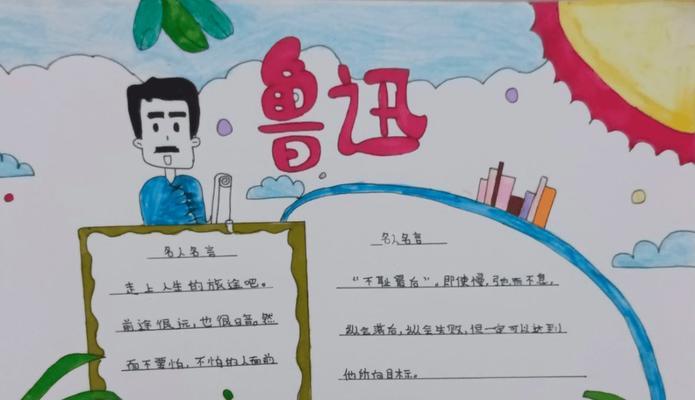 鲁迅
名人名言
走上人生的旅途吧。
前途很远，也很暗。然
而不要怕，不怕的人面前
名人名言
“不耻最后”。即使慢，弛而不息，
纵令落后，纵令失败，但一定可以达到
他所向目标。